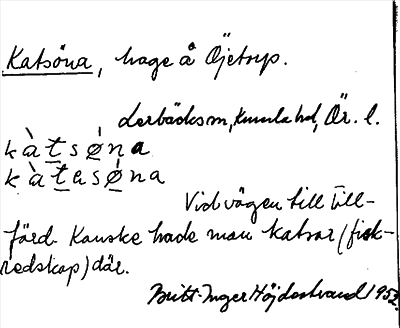 Katsöna, hage å Öjetorp.
Lerbäcks sn, Kumla hd, Ör. l.
kàtsǿna
kàtasǿna
Vid vägen till Till-
förd. Kanske hade man katsor (fisk-
redskap) där.
Britt-Inger Höjdestrand 1952.